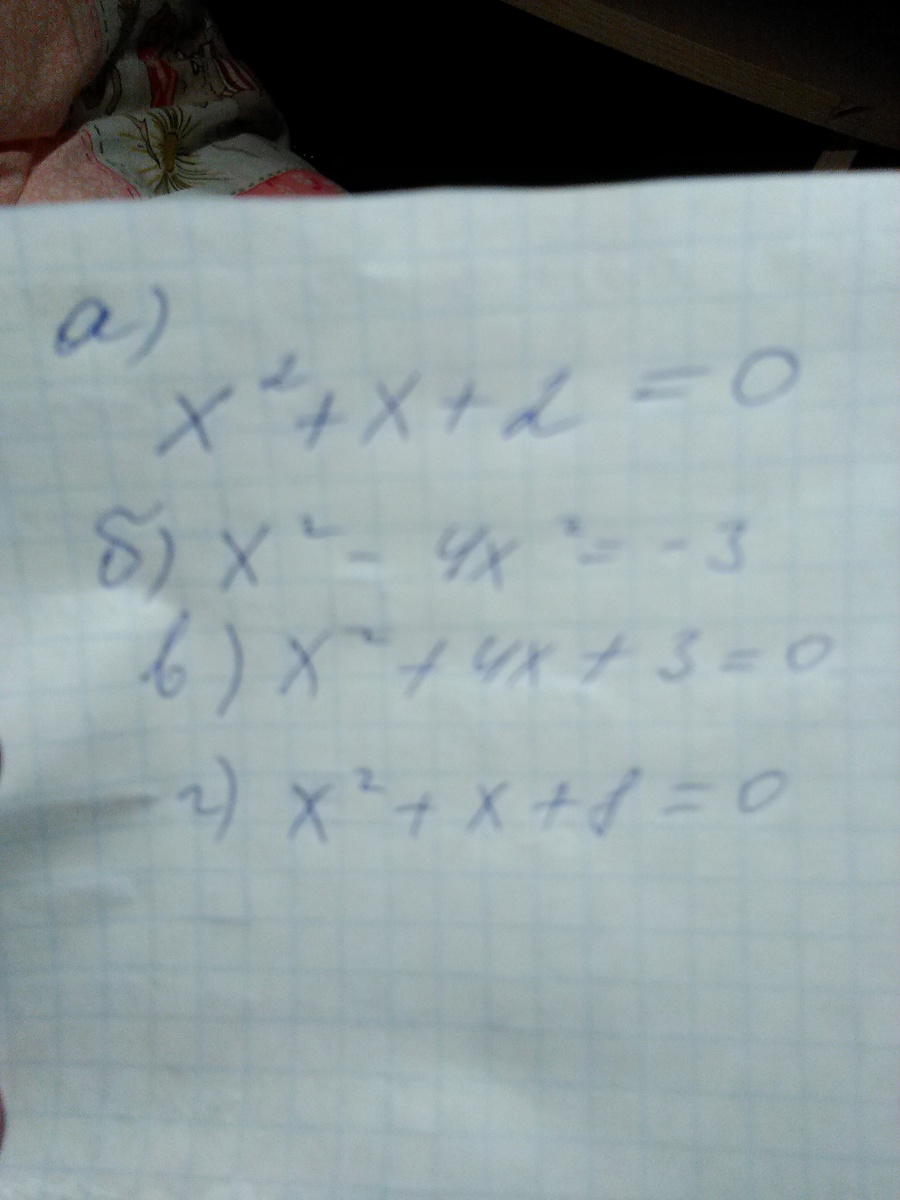 а)
x² + x + 2 = 0
б) x² - 4x² = -3
в) x² + 4x + 3 = 0
г) x² + x + 8 = 0